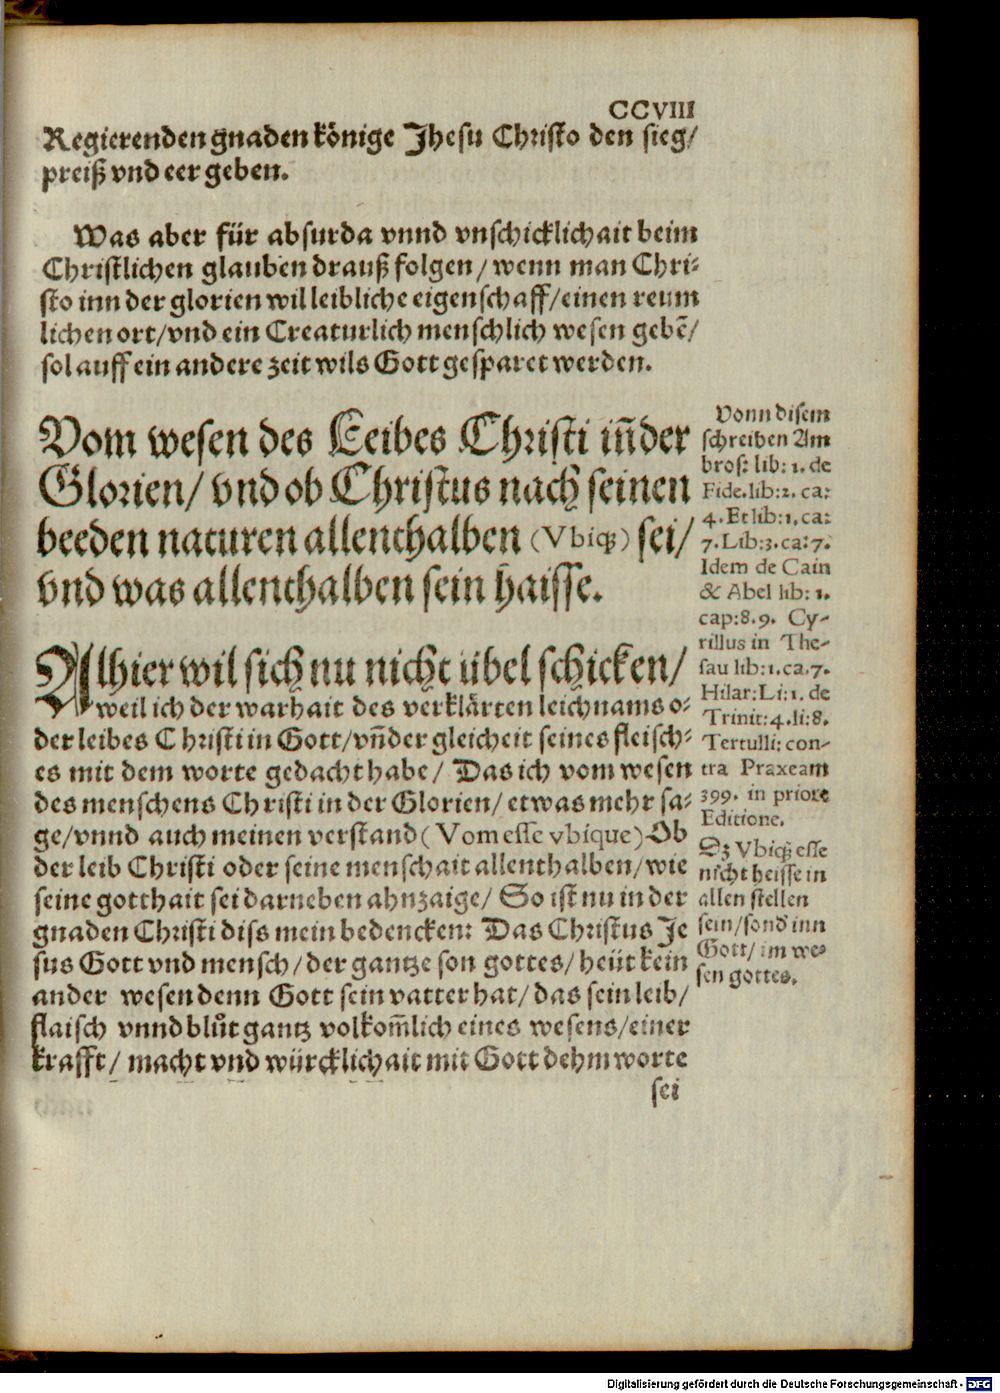 CCVIII
Regierenden gnaden könige Jhesu Christo den sieg/
preiß vnd eer geben.
Was aber für absurda vnnd vnschicklichait beim
Christlichen glauben drauß folgen/ wenn man Chri-
sto inn der glorien wil leibliche eigenschaff/ einen reum
lichen ort/ vnd ein Creaturlich menschlich wesen gebē/
sol auff ein andere zeit wils Gott gesparet werden.
Vom wesen des Leibes Christi iñ der
Glorien/ vnd ob Christus nach seinen
beeden naturen allenthalben (Vbiqꝫ) sei/
vnd was allenthalben sein haisse.
Alhier wil sich nu nicht übel schicken/
weil ich der warhait des verklärten leichnams o-
der leibes Christi in Gott/ vñ der gleicheit seines fleisch-
es mit dem worte gedacht habe/ Das ich vom wesen
des menschens Christi in der Glorien/ etwas mehr sa-
ge/ vnnd auch meinen verstand (Vom esse vbique) Ob
der leib Christi oder seine menschait allenthalben/ wie
seine gotthait sei darneben ahnzaige/ So ist nu in der
gnaden Christi diss mein bedencken: Das Christus Je
sus Gott vnd mensch/ der gantze son gottes/ heüt kein
ander wesen denn Gott sein vatter hat/ das sein leib/
flaisch vnnd blůt gantz volkom̃lich eines wesens/ einer
krafft/ macht vnd würcklichait mit Gott dehm worte
sei
Vonn disem
schreiben Am
bros: lib: 1. de
Fide. lib: 2. ca:
4. Et lib: 1. ca:
7. Lib: 3. ca: 7.
Idem de Cain
& Abel lib: 1.
cap: 8. 9. Cy-
rillus in The-
sau lib: 1. ca. 7.
Hilar: Li: 1. de
Trinit: 4. li: 8.
Tertulli: con-
tra Praxeam
399. in priore
Editione.
Dz Vbiqꝫ esse
nicht heisse in
allen stellen
sein/ sond inn
Gott/ im we-
sen gottes.
Digitalisierung gefördert durch die Deutsche Forschungsgemeinschaft - DFG